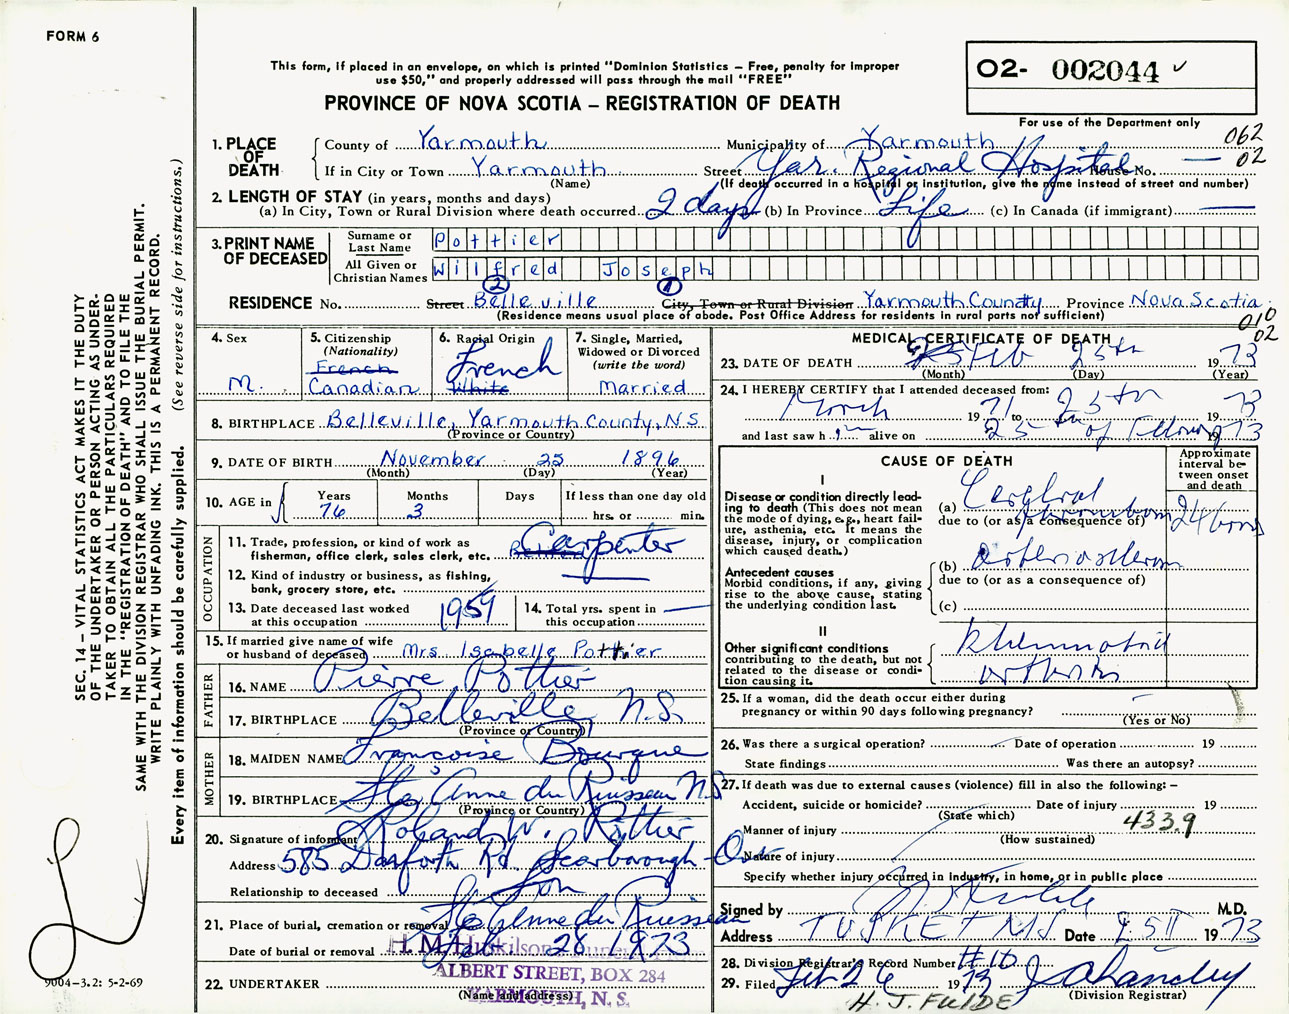 FORM 6
This form, if placed in an envelope, on which is printed "Dominion Statistics — Free, penalty for improper
use $50," and properly addressed will pass through the mail "FREE"
PROVINCE OF NOVA SCOTIA — REGISTRATION OF DEATH
O2- 002044
For use of the Department only
062
02
1. PLACE OF DEATH
County of Yarmouth Municipality of Yarmouth
If in City or Town Yarmouth Street Yar. Regional Hospital House No. —
(Name) (If death occurred in a hospital or institution, give the name instead of street and number)
2. LENGTH OF STAY (in years, months and days)
(a) In City, Town or Rural Division where death occurred 2 days (b) In Province Life (c) In Canada (if immigrant) —
3. PRINT NAME OF DECEASED
Surname or Last Name Pottier
All Given or Christian Names Wilfred Joseph
2 1
RESIDENCE No. Street Belleville City, Town or Rural Division Yarmouth County Province Nova Scotia
(Residence means usual place of abode. Post Office Address for residents in rural parts not sufficient)
010
02
4. Sex M.
5. Citizenship (Nationality) French Canadian
6. Racial Origin French White
7. Single, Married, Widowed or Divorced (write the word) Married
8. BIRTHPLACE Belleville, Yarmouth County, N.S.
(Province or Country)
9. DATE OF BIRTH November 25 1896
(Month) (Day) (Year)
10. AGE in Years 76 Months 3 Days If less than one day old hrs. or min.
OCCUPATION
11. Trade, profession, or kind of work as fisherman, office clerk, sales clerk, etc. Carpenter
12. Kind of industry or business, as fishing, bank, grocery store, etc. —
13. Date deceased last worked at this occupation 1959
14. Total yrs. spent in this occupation —
15. If married give name of wife or husband of deceased Mrs Isabelle Pottier
FATHER
16. NAME Pierre Pottier
17. BIRTHPLACE Belleville, N.S.
(Province or Country)
MOTHER
18. MAIDEN NAME Francoise Bourque
19. BIRTHPLACE Ste Anne du Ruisseau N.S.
(Province or Country)
20. Signature of informant Roland W. Pottier
Address 585 Danforth Rd. Scarborough - Ont
Relationship to deceased Son
21. Place of burial, cremation or removal Ste Anne du Ruisseau
Date of burial or removal Feb. 28 1973
22. UNDERTAKER
H. M. Huskilson
ALBERT STREET, BOX 284
YARMOUTH, N. S.
(Name and address)
MEDICAL CERTIFICATE OF DEATH
23. DATE OF DEATH Feb 25th 1973
(Month) (Day) (Year)
24. I HEREBY CERTIFY that I attended deceased from:
March 1971 to 25th 1973
and last saw h im alive on 25th of February 1973
CAUSE OF DEATH
Approximate interval between onset and death
I
Disease or condition directly leading to death (This does not mean the mode of dying, e.g., heart failure, asthenia, etc. It means the disease, injury, or complication which caused death.)
(a) Cerebral thrombosis 24 hours
due to (or as a consequence of)
Antecedent causes
Morbid conditions, if any, giving rise to the above cause, stating the underlying condition last.
(b) arteriosclerosis
due to (or as a consequence of)
(c)
II
Other significant conditions contributing to the death, but not related to the disease or condition causing it.
Rheumatoid arthritis
25. If a woman, did the death occur either during pregnancy or within 90 days following pregnancy? —
(Yes or No)
26. Was there a surgical operation? Date of operation 19
State findings Was there an autopsy?
27. If death was due to external causes (violence) fill in also the following: —
Accident, suicide or homicide? Date of injury 19
(State which)
4339
Manner of injury
(How sustained)
Nature of injury
Specify whether injury occurred in industry, in home, or in public place
Signed by M.D.
Address TUSKET NS Date 25 II 1973
28. Division Registrar's Record Number #10
29. Filed Feb 26 1973
(Division Registrar)
H. J. FULDE
SEC. 14 — VITAL STATISTICS ACT MAKES IT THE DUTY
OF THE UNDERTAKER OR PERSON ACTING AS UNDER-
TAKER TO OBTAIN ALL THE PARTICULARS REQUIRED
IN THE "REGISTRATION OF DEATH" AND TO FILE THE
SAME WITH THE DIVISION REGISTRAR WHO SHALL ISSUE THE BURIAL PERMIT.
WRITE PLAINLY WITH UNFADING INK. THIS IS A PERMANENT RECORD.
Every item of information should be carefully supplied. (See reverse side for instructions.)
9004-3.2: 5-2-69